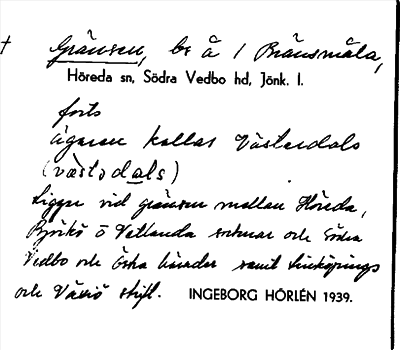 † Gränsen, be å 1 Bränsmåla,
Höreda sn, Södra Vedbo hd, Jönk. l.
forts
ägaren kallas Västerdals
(væstədals)
Ligger vid gränsen mellan Höreda,
Björkö o Vetlanda socknar och Södra
Vedbo och Östra härader samt Linköpings
och Växiö stift. INGEBORG HÖRLÉN 1939.